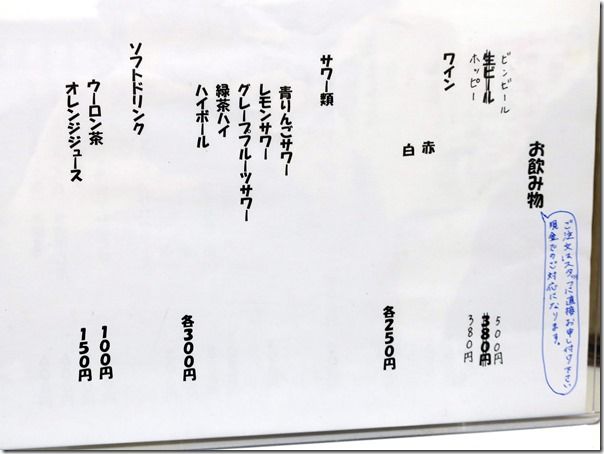 お飲み物
ご注文はスタッフに直接お申し付け下さい
現金でのご対応になります。
ビンビール 500円
生ビール 380円
ホッピー 380円
ワイン
赤
白
各250円
サワー類
青りんごサワー
レモンサワー
グレープフルーツサワー
緑茶ハイ
ハイボール
各300円
ソフトドリンク
ウーロン茶 100円
オレンジジュース 150円